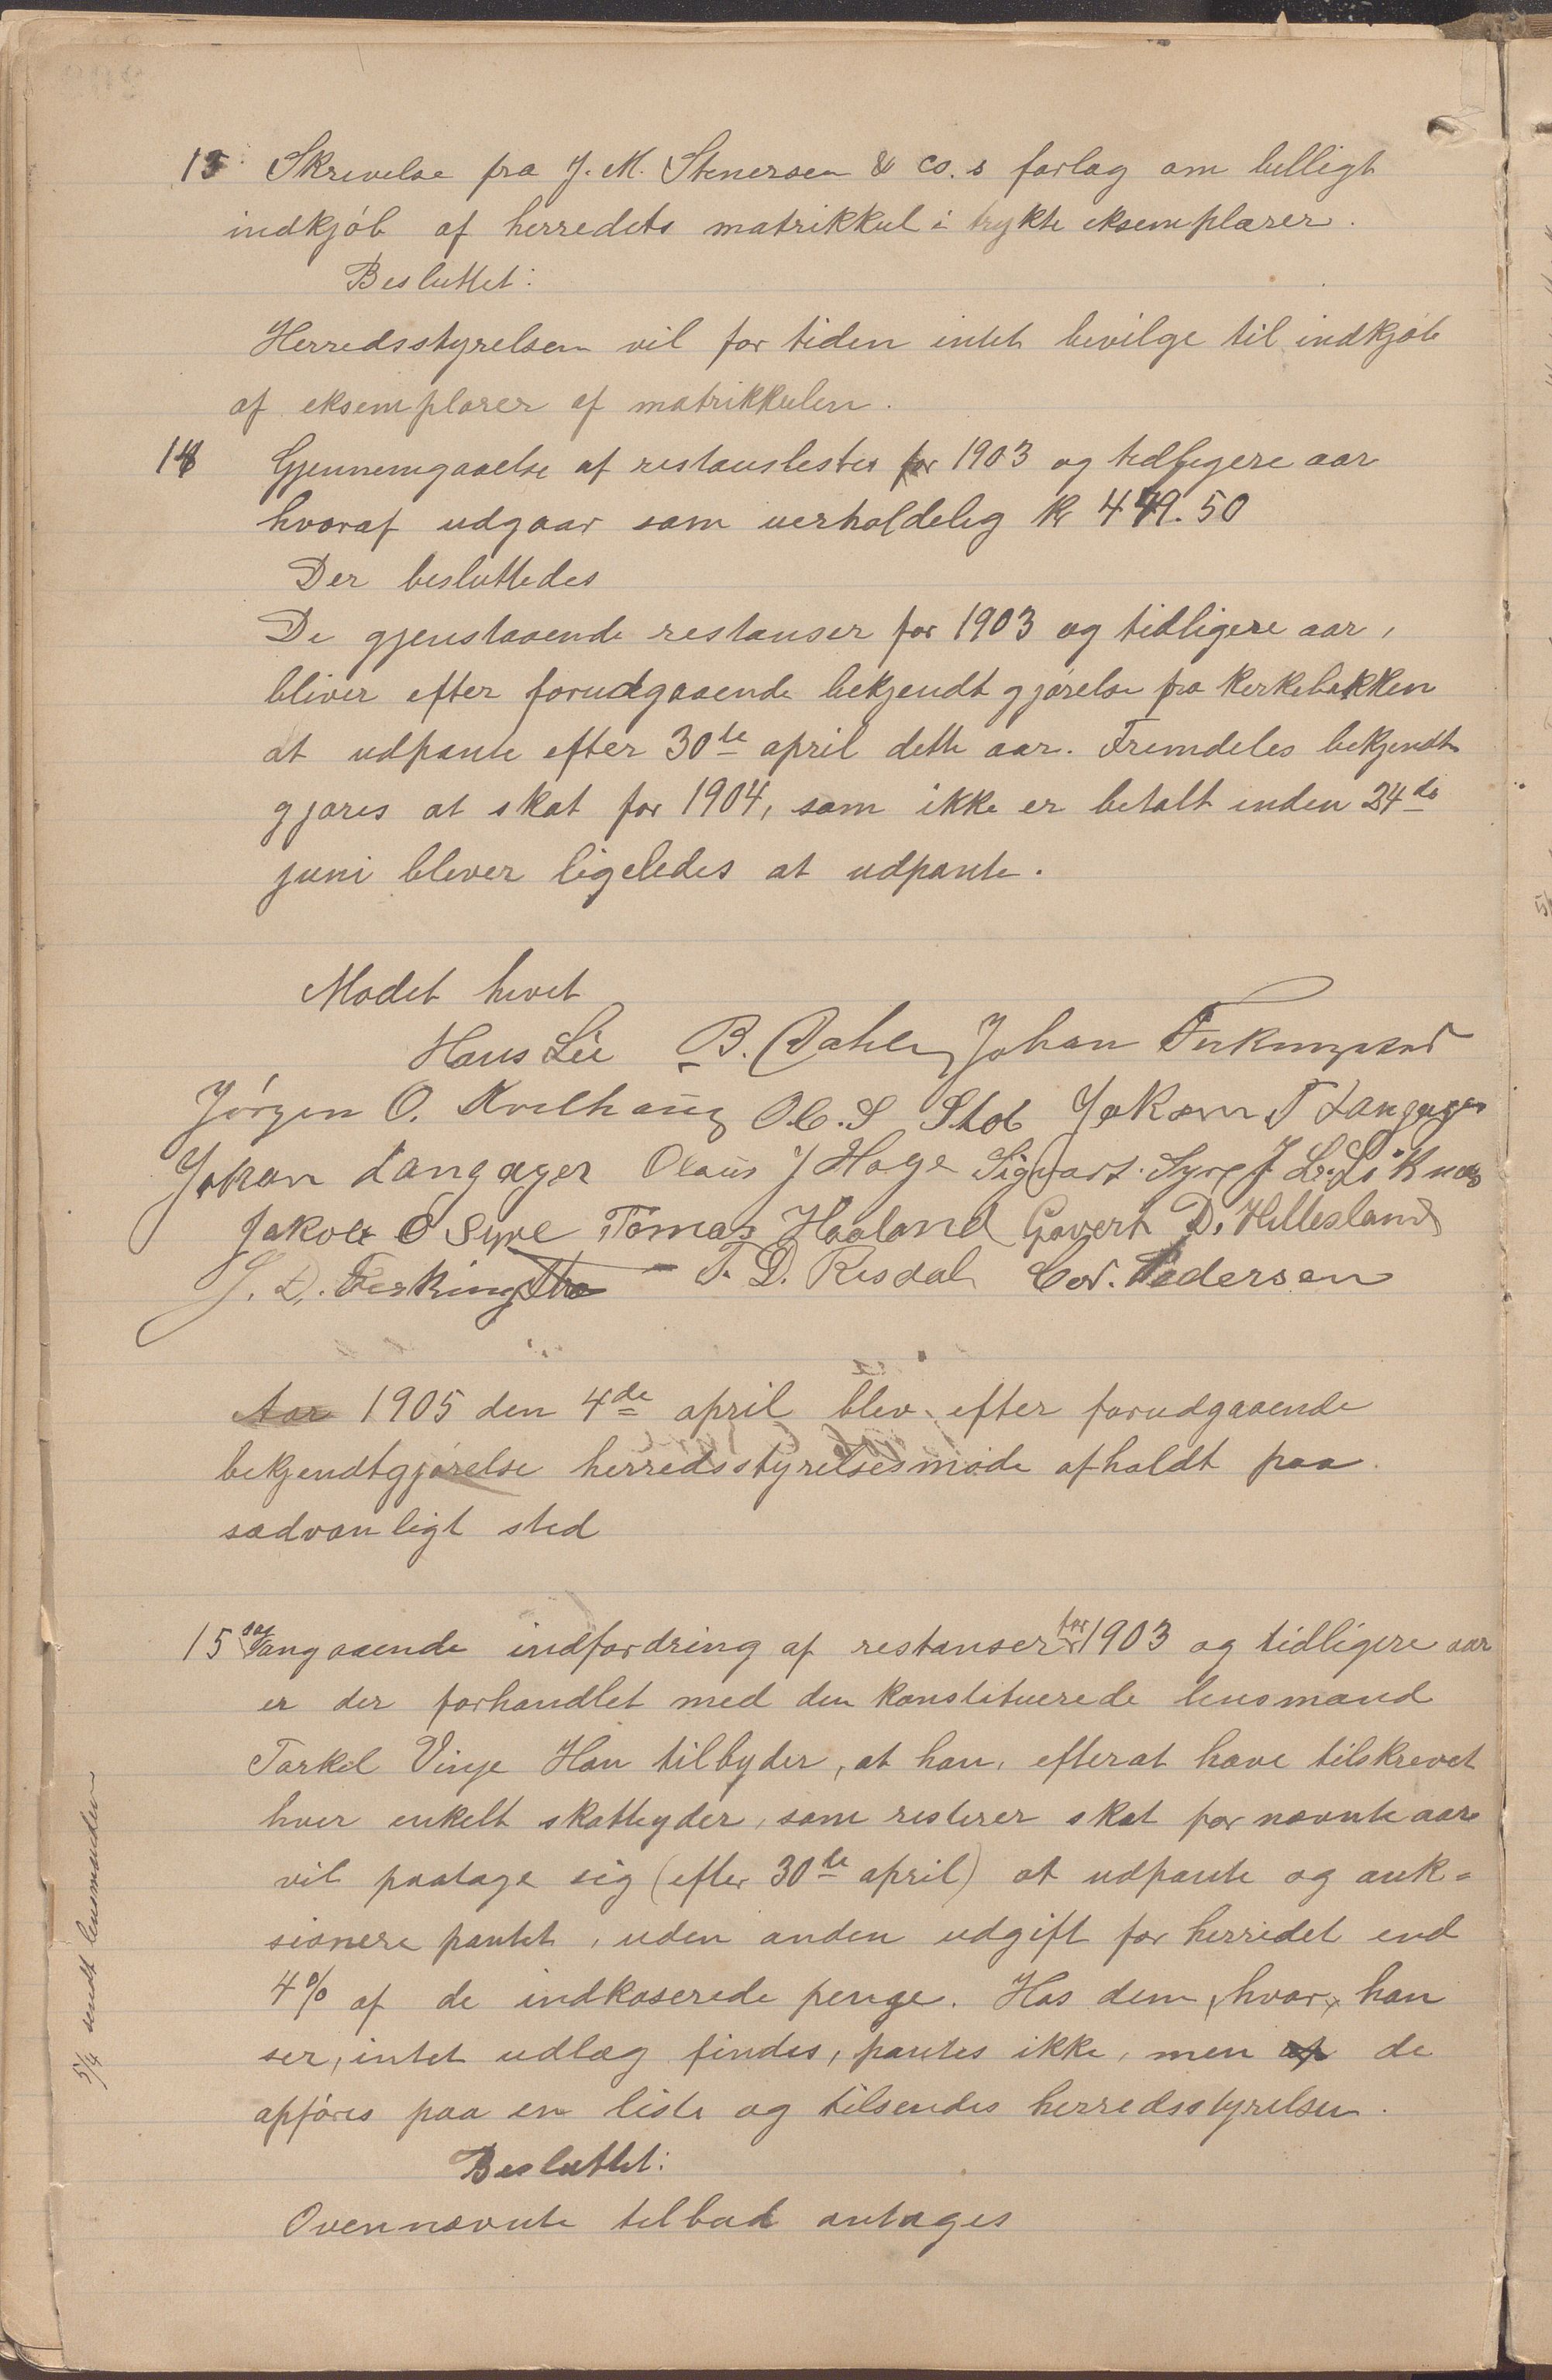 13 Skrivelse fra J. M. Stenersen & co.s forlag om billigt
indkjøb af herredets matrikkul i trykte eksemplarer.
Besluttet:
Herredsstyrelsen vil for tiden intet bevilge til indkjøb
af eksemplarer af matrikkulen.
14 Gjennemgaaelse af restanslister for 1903 og tidligere aar
hvoraf udgaar som uerholdelig kr 449.50
Der besluttedes
De gjenstaaende restanser for 1903 og tidligere aar,
bliver efter forudgaaende bekjendtgjørelse fra kirkebakken
at udpante efter 30te april dette aar. Fremdeles bekjendt
gjøres at skat for 1904, som ikke er betalt inden 24de
juni bliver ligeledes at udpante.
Mødet hevet
Hans Lie B. Dahle Johan Ferkingstad
Jørgen O. Kvilhaug Ol. S Stol Jakob T Langager
Johan Langager Olaus J Hage Sigvart Syre J L. Liknes
Jakob O Syre Tomas Haaland Govert D. Hillesland
S. D. Ferkingstad T. D. Risdal Edv. Pedersen
Aar 1905 den 4de april blev efter forudgaaende
bekjendtgjørelse herredsstyrelsesmøde afholdt paa
sædvanligt sted
15 Sag angaaende indfordring af restanser for 1903 og tidligere aar
er der forhandlet med den konstituerede lensmand
Torkel Vinje Han tilbyder, at han, efterat have tilskrevet
hver enkelt skatteyder, som resterer skat for nævnte aar
vil paatage sig (efter 30te april) at udpante og auk=
sionere pantet, uden anden udgift for herredet end
4% af de indkaserede penge. Hos dem, hvor, han
ser, intet udlæg findes, pantes ikke, men af de
opføres paa en liste og tilsendes herredsstyrelsen.
Besluttet:
Ovennævnte tilbud antages
5/4 sendt lensmanden